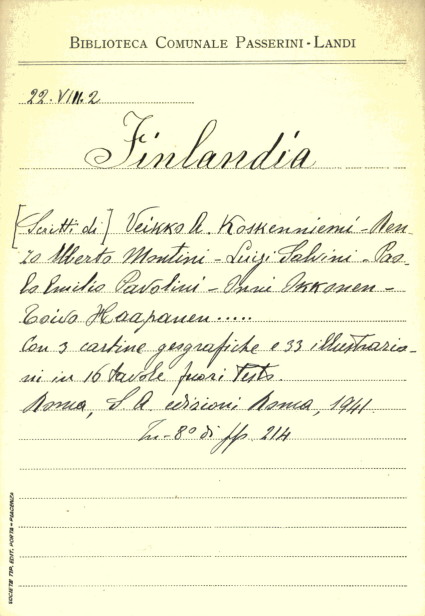 BIBLIOTECA COMUNALE PASSERINI-LANDI
22. VIII. 2
Finlandia
[Scritti di] Veikko A. Koskenniemi - Ren-
zo Uberto Montini - Luigi Salvini - Pao-
lo Emilio Pavolini - Onni Okkonen -
Toivo Haapanen .....
Con 3 cartine geografiche e 33 illustrazio-
ni in 16 tavole fuori testo.
Roma, S. A. edizioni Roma, 1941.
In-8° di pp. 214
SOCIETÀ TIP. EDIT. PORTA - PIACENZA